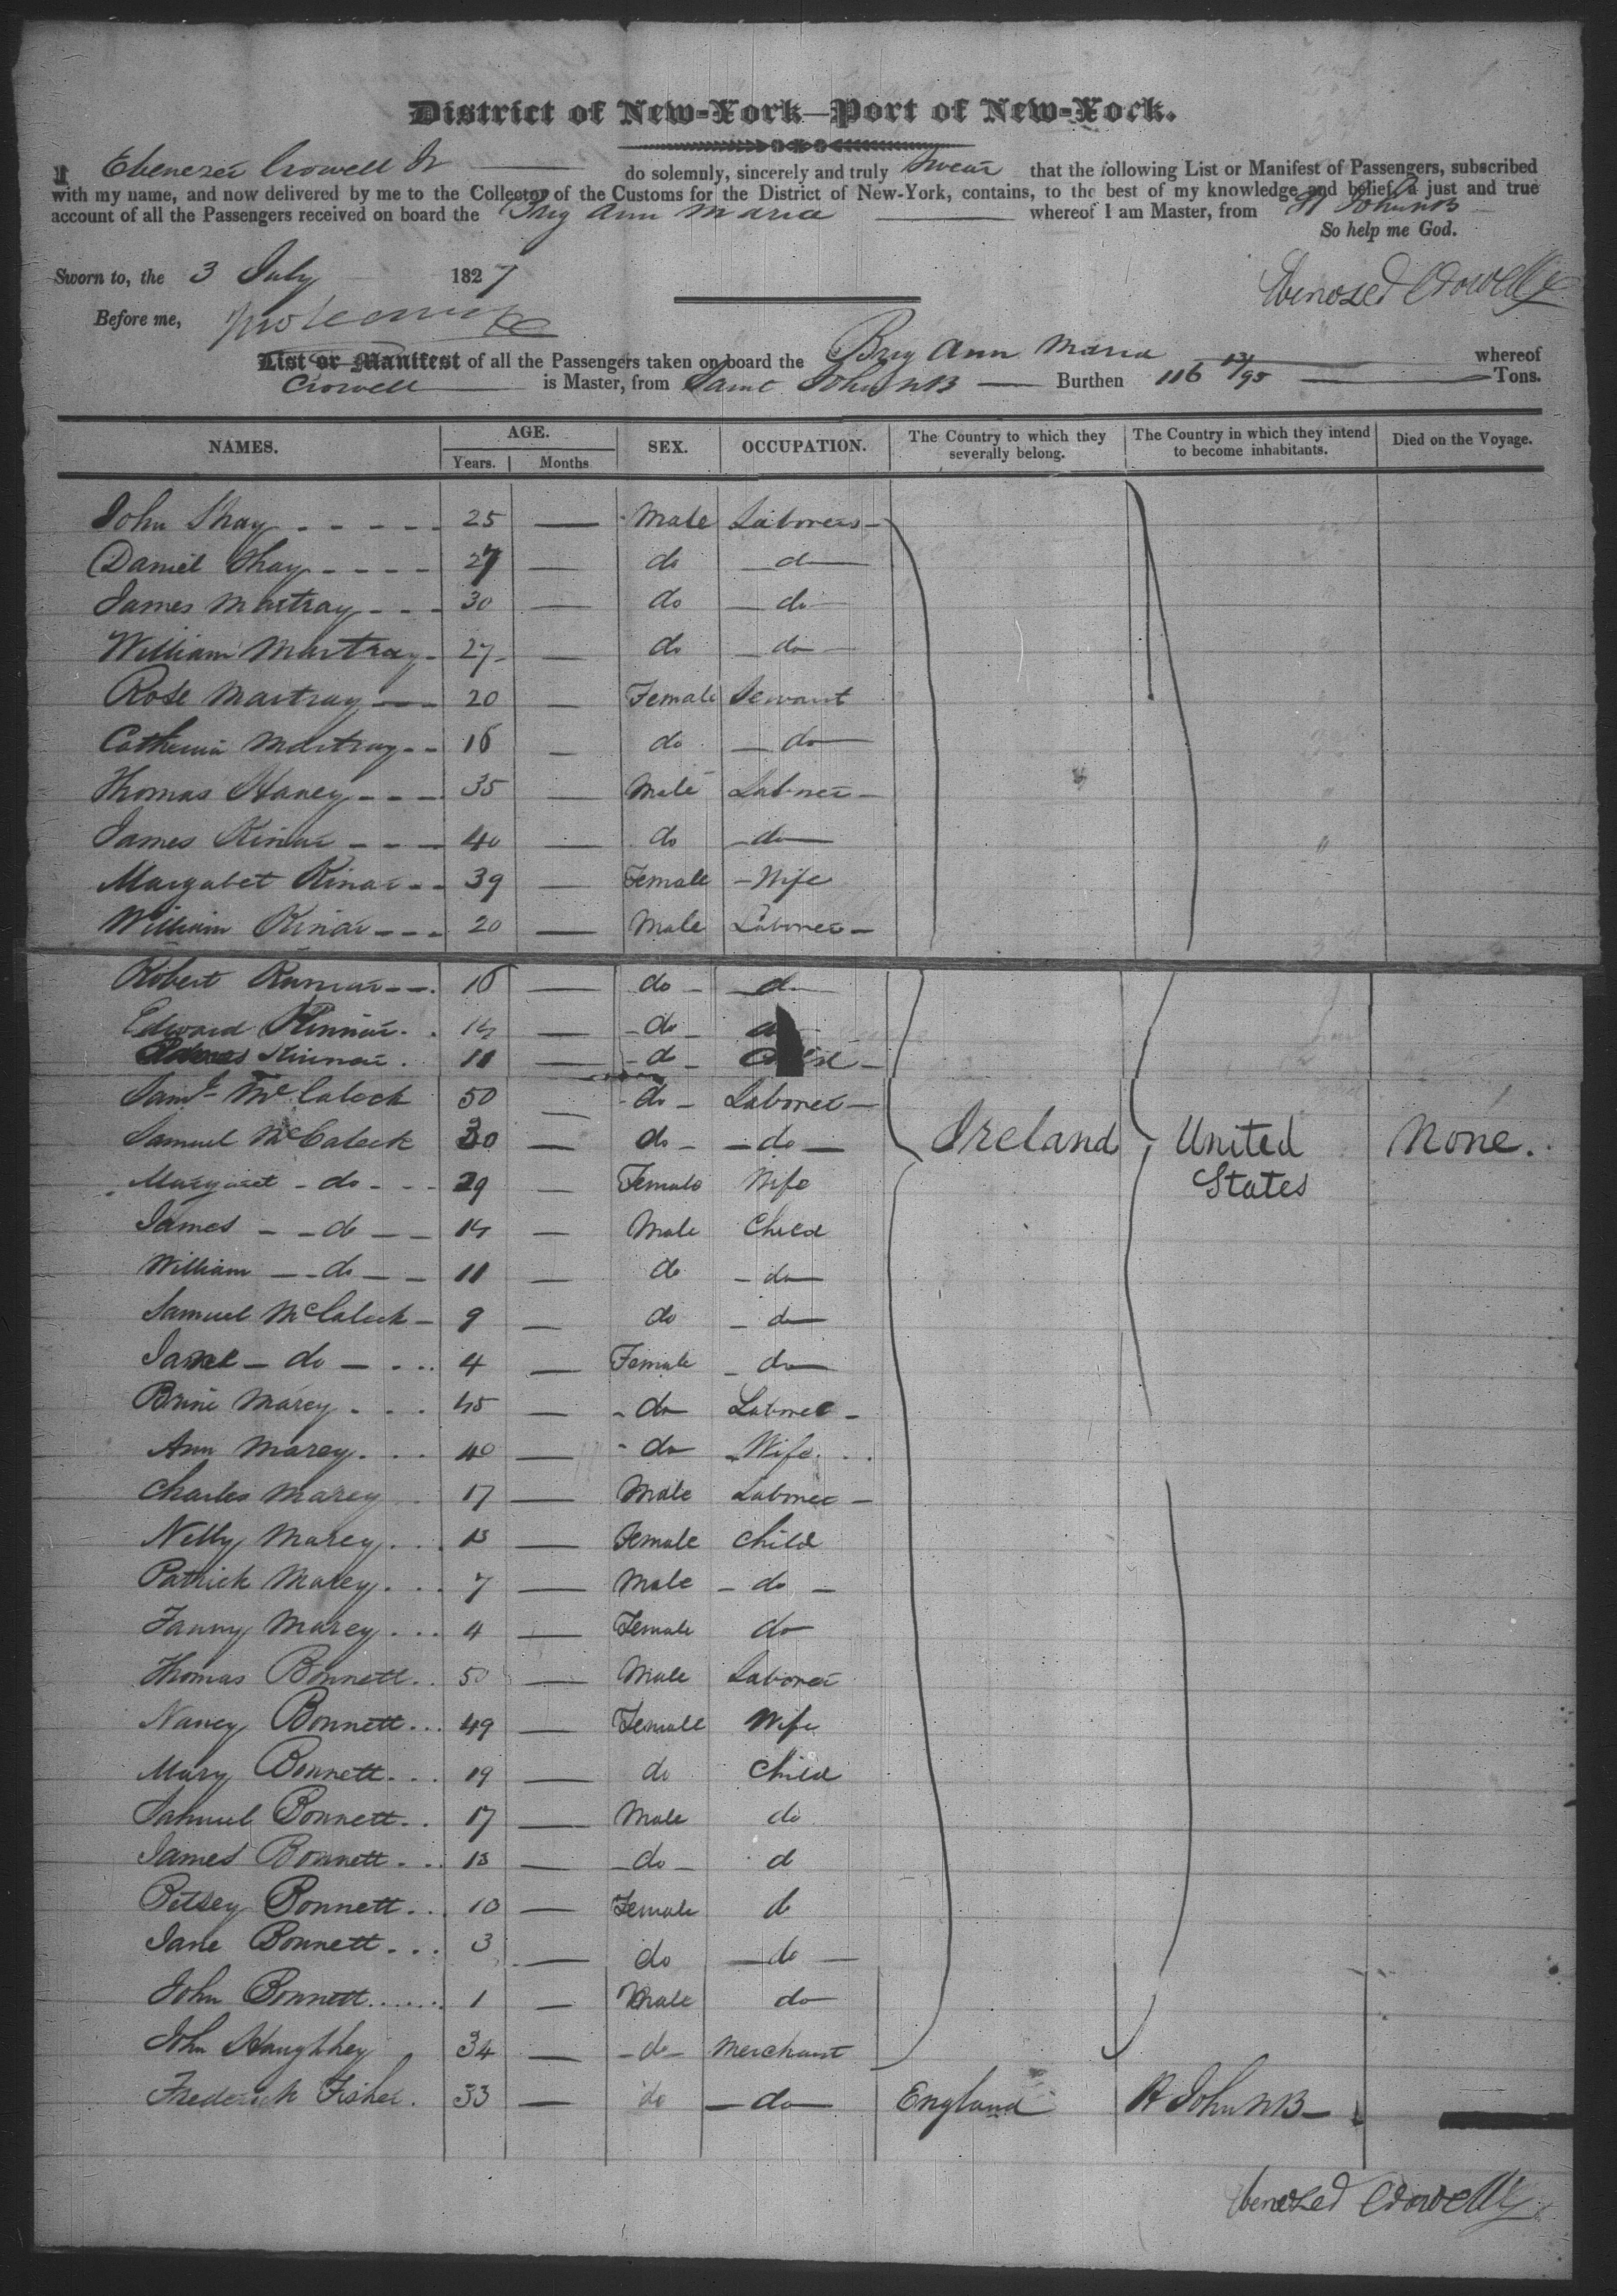 District of New-York—Port of New-York.
I Ebenezer Crowell Jr do solemnly, sincerely and truly Swear that the following List or Manifest of Passengers, subscribed
with my name, and now delivered by me to the Collector of the Customs for the District of New-York, contains, to the best of my knowledge and belief, a just and true
account of all the Passengers received on board the Brig Ann Maria whereof I am Master, from St John NB
So help me God.
Sworn to, the 3 July 1827
Ebenezer Crowell Jr
Before me,
List or Manifest of all the Passengers taken on board the Brig Ann Maria whereof
Crowell is Master, from Saint John NB Burthen 116 /95 Tons.
NAMES. AGE. SEX. OCCUPATION. The Country to which they severally belong. The Country in which they intend to become inhabitants. Died on the Voyage.
Years. Months
John Shay 25 — Male Laborers
Daniel Shay 27 — do do
James Martray 30 — do do
William Martray 27 — do do
Rose Martray 20 — Female Servant
Catherin Martray 16 — do do
Thomas Haney 35 — Male Laborer
James Kinar 40 — do do
Margabet Kinar 39 — Female Wife
William Kinar 20 — Male Laborer
Robert 16 — do do
Edward Kinnar 14 — do
Kinnar 11 — do Child
Saml McCaleck 50 — do Laborer
Samuel McCaleck 30 — do do Ireland United States None.
Margaret do 29 — Female Wife
James do 14 — Male Child
William do 11 — do do
Samuel McCaleck 9 — do do
Jane do 4 — Female do
Marey 45 — do Laborer
Ann Marey 40 — do Wife
Charles Marey 17 — Male Laborer
Nelly Marey 13 — Female Child
Patrick Marey 7 — Male do
Fanny Marey 4 — Female do
Thomas Bonnett 50 — Male Laborer
Nancy Bonnett 49 — Female Wife
Mary Bonnett 19 — do Child
Samuel Bonnett 17 — Male do
James Bonnett 13 — do d
Betsey Bonnett 10 — Female do
Jane Bonnett 3 — do do
John Bonnett 1 — Male do
John Haughhey 34 — do Merchant
Frederick Fisher 33 — do do England St John NB
Ebenezer Crowell Jr